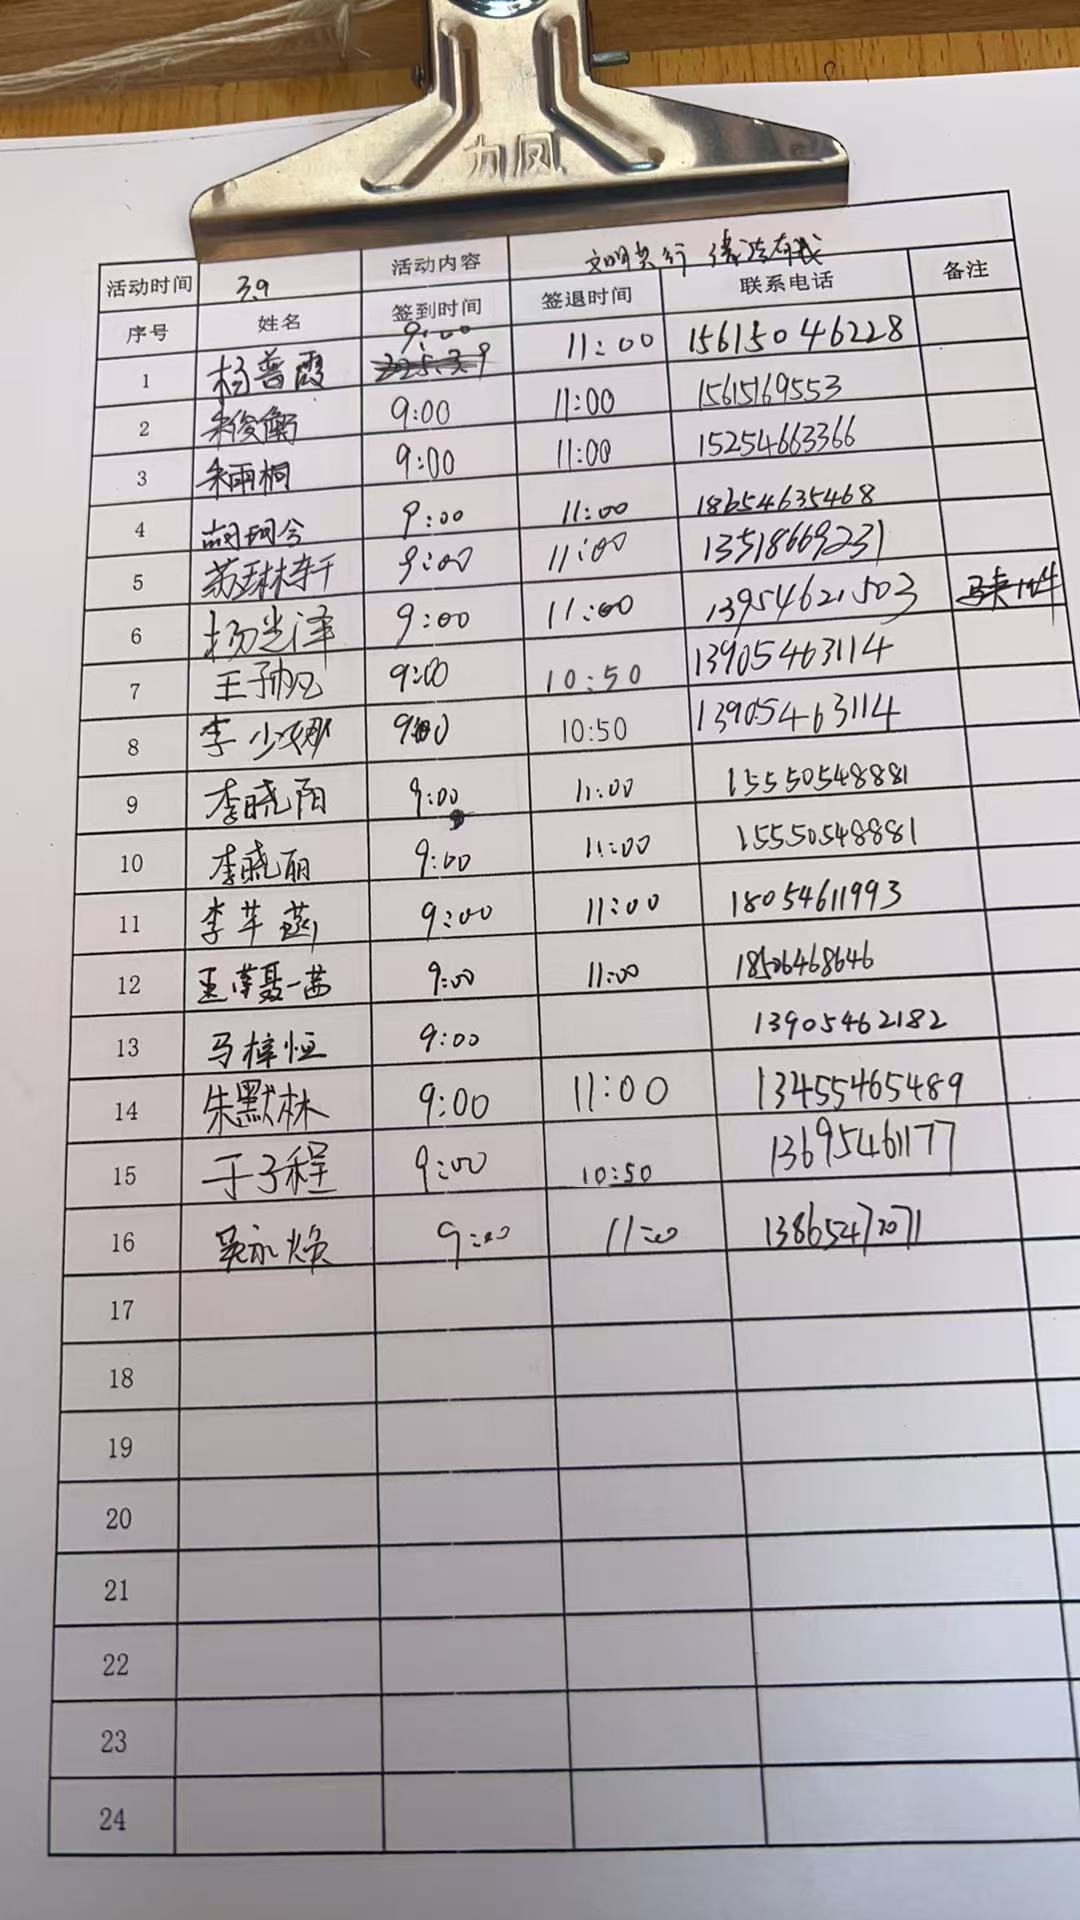 力风
活动时间 3.9 活动内容 文明其行 清洁有我
序号 姓名 签到时间 签退时间 联系电话 备注
1 杨普霞 9:00 11:00 15615046228
2 朱俊衡 9:00 11:00 1561569553
3 朱雨桐 9:00 11:00 15254663366
4 胡珂兮 9:00 11:00 18654635468
5 苏琳轩 9:00 11:00 13518669231
6 杨光泽 9:00 11:00 13954621503
7 王子凡 9:00 10:50 13905463114
8 李少娜 9:00 10:50 13905463114
9 李晓阳 9:00 11:00 15550548881
10 李晓丽 9:00 11:00 15550548881
11 李芊蕊 9:00 11:00 18054611993
12 9:00 11:00 18506468646
13 马梓恒 9:00 13905462182
14 朱默林 9:00 11:00 13455465489
15 于子程 9:00 10:50 13695461177
16 吴永焕 9:00 11:00 13865472071
17
18
19
20
21
22
23
24